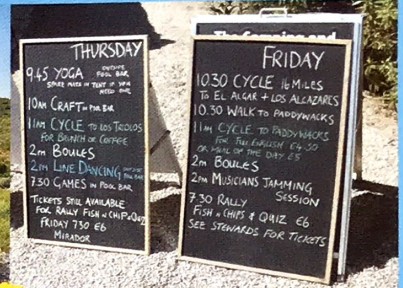 THURSDAY
9.45 YOGA OUTSIDE POOL BAR
SPARE MATS IN TENT IF YOU NEED ONE
10AM CRAFT IN POOL BAR
11AM CYCLE TO LOS TRIOLOS
FOR BRUNCH OR COFFEE
2PM BOULES
2PM LINE DANCING OUTSIDE POOL BAR
7.30 GAMES IN POOL BAR
TICKETS STILL AVAILABLE
FOR RALLY FISH N CHIP & QUIZ
FRIDAY 7.30 €6
MIRADOR
The Camping and
FRIDAY
10.30 CYCLE 16 MILES
TO EL ALGAR + LOS ALCAZARES
10.30 WALK TO PADDYWACKS
11AM CYCLE TO PADDYWACKS
FOR FULL ENGLISH €4.50
OR MEAL OF THE DAY €5
2PM BOULES
2PM MUSICIANS JAMMING
SESSION
7.30 RALLY
FISH N CHIPS & QUIZ €6
SEE STEWARDS FOR TICKETS